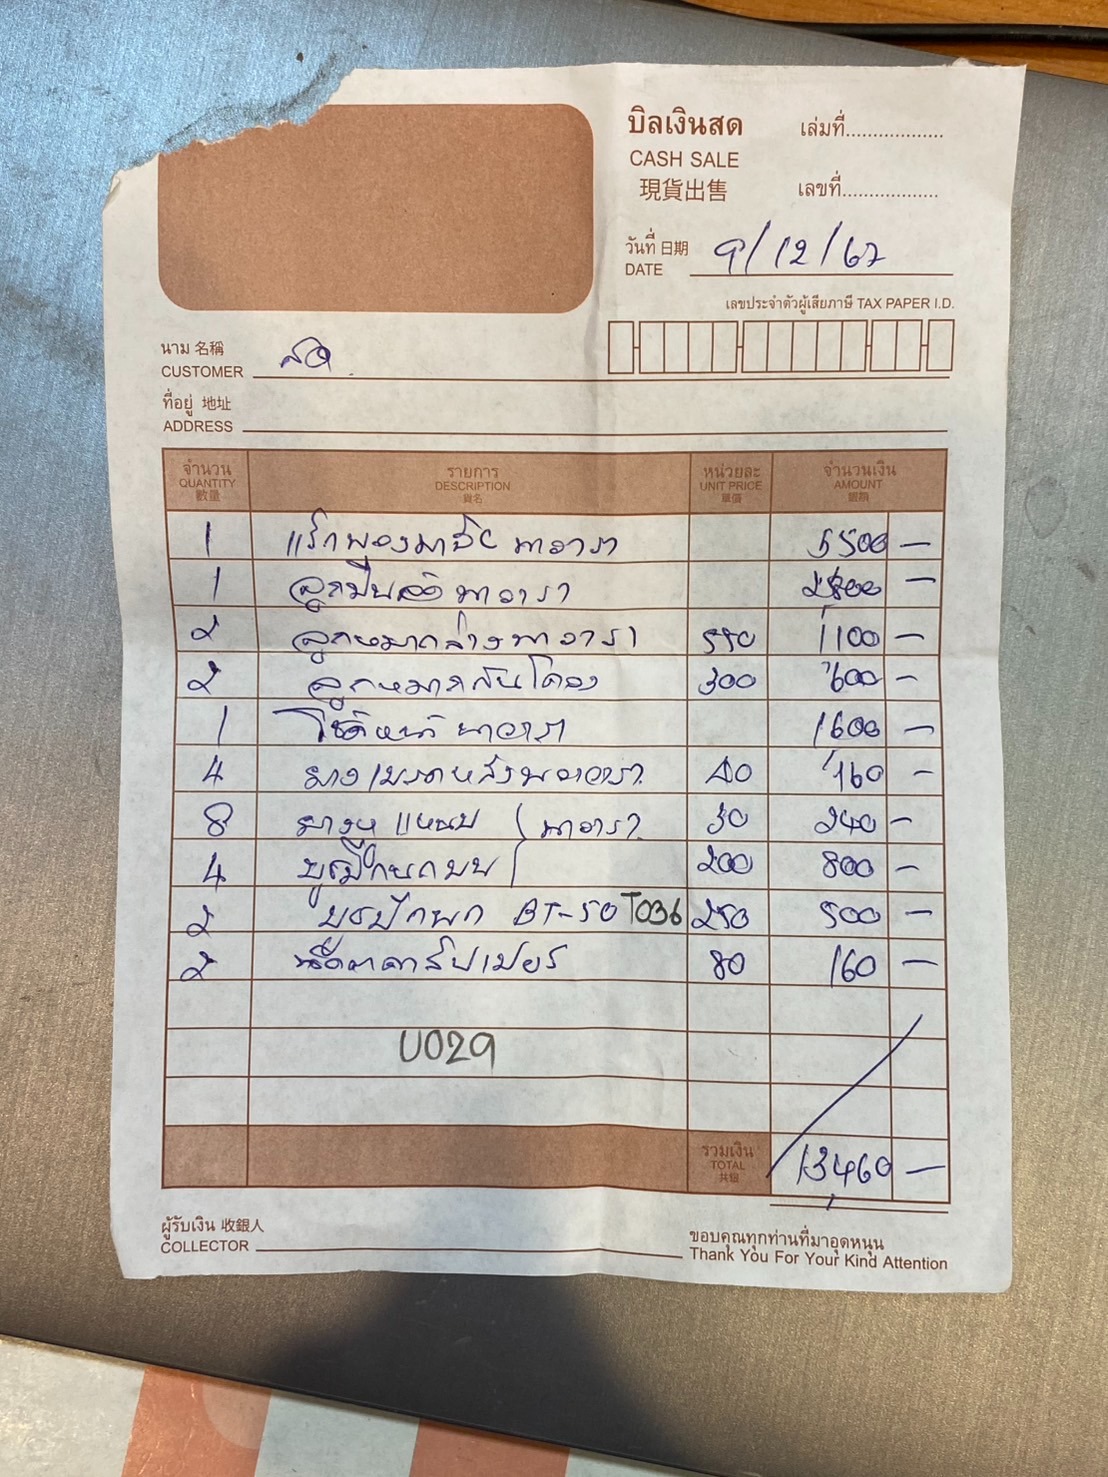 บิลเงินสด เล่มที่..................
CASH SALE
現貨出售 เลขที่..................
วันที่ 日期 9/12/67
DATE
เลขประจำตัวผู้เสียภาษี TAX PAPER I.D.
นาม 名稱
CUSTOMER สด
ที่อยู่ 地址
ADDRESS
จำนวน รายการ หน่วยละ จำนวนเงิน
QUANTITY DESCRIPTION UNIT PRICE AMOUNT
數量 貨名 單價 銀額
1 แร็ค นาวารา 5500 -
1 ลูกปืนล้อ นาวารา 2800 -
2 ลูกหมากล่าง นาวารา 550 1100 -
2 ลูกหมากกันโคลง 300 600 -
1 โช้คหน้า นาวารา 1600 -
4 ยางเบรคหลัง นาวารา 40 160 -
8 ยางหูแหนบ นาวารา 30 240 -
4 บูชปีกนกบน 200 800 -
2 BT-50 T036 250 500 -
2 80 160 -
U029
รวมเงิน
TOTAL 13,460 -
共銀
ผู้รับเงิน 收銀人
COLLECTOR
ขอบคุณทุกท่านที่มาอุดหนุน
Thank You For Your Kind Attention